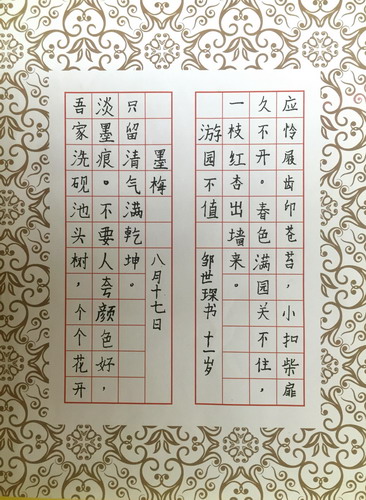 应怜展齿印苍苔，小扣柴扉
久不开。春色满园关不住，
一枝红杏出墙来。
游园不值 邹世琛书 十一岁
吾家洗砚池头树，个个花开
淡墨痕。不要人夸颜色好，
只留清气满乾坤。
墨梅 八月十七日